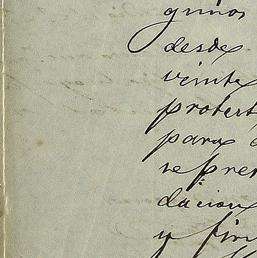 gunos
desde
veinte
protest
para
se pre
dacion
y fir